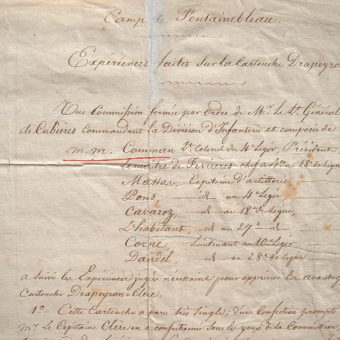 Camp de Fontainebleau.
Expériences faites sur la Cartouche Drapeyron
Une Commission formée par ordre de Mr. le Lt. Général
de Cubières commandant la Division d'Infanterie et composée de
M.M. Comman Lt. Colonel du 4e Léger, Président
Lemestre de Ferrières chef de
Massas, Capitaine d'artillerie
Pons — id — au 4e Léger
Cavaroz — id — au 18e de ligne
L'habitant, — id — au 29e — id
Corné Lieutenant au 10e Léger
Dardel — id — au 28e de ligne
a suivi les Expériences jugées nécessaires pour apprécier les avantages
Cartouche Drapeyron & Clère.
1° Cette Cartouche a paru très simple; d'une confection prompte
Mr. le Capitaine Clère en a confectionné sous les yeux de la Commission